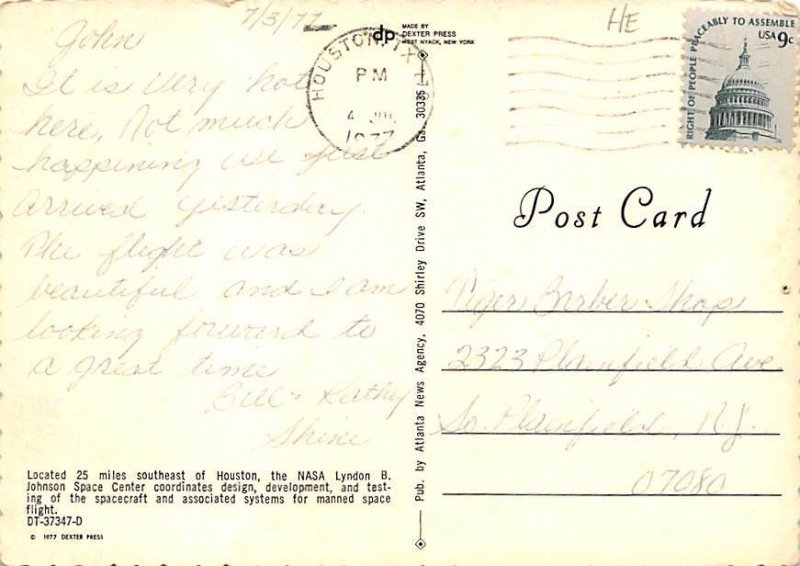 7/3/77
HE
MADE BY
dp DEXTER PRESS
WEST NYACK, NEW YORK
HOUSTON, TX
PM
4 JUL
1977
RIGHT OF PEOPLE PEACEABLY TO ASSEMBLE
USA 9c
John
It is very hot
here. Not much
happining we just
arrived yesterday.
The flight was
beautiful and I am
looking forward to
a great time
Bill + Kathy
Post Card
Tigers Barber Shop
2323 Plainfield Ave
So. Plainfield, N.J.
07080
Pub. by Atlanta News Agency, 4070 Shirley Drive SW, Atlanta, Ga. 30336
Located 25 miles southeast of Houston, the NASA Lyndon B.
Johnson Space Center coordinates design, development, and test-
ing of the spacecraft and associated systems for manned space
flight.
DT-37347-D
© 1977 DEXTER PRESS